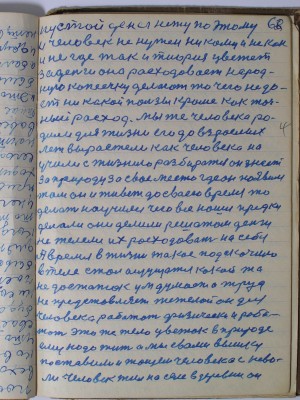 пустой денег нету поэтому 68
и человек не нужен никому и некак
и не где так и творя цветет
за деньги она расходовает народ-
ную копеечку делают то чего недо-
ст ни какой пользы кроме как тон-
ный расход. мы же человека ро-
дили для жизни его до взрослых
лет вырастели как человека на
учили с жизнию разбиратся он знает
за природу за свое место где он
там он и живет до своего время то
делат научился чего все наши предки
делали они делили решатом деньги
не желели их расходоват на себя
А время в жизни такое подскочило
в теле стал ощущатся какой та
недостаток ум думает а труд
не представляет жетелой он для
человека работат физически и робе-
тот это же тело цветок в природе
ему надо жит а мы свами
поставили и тощем человека с нево-
ли человек жил на селе он